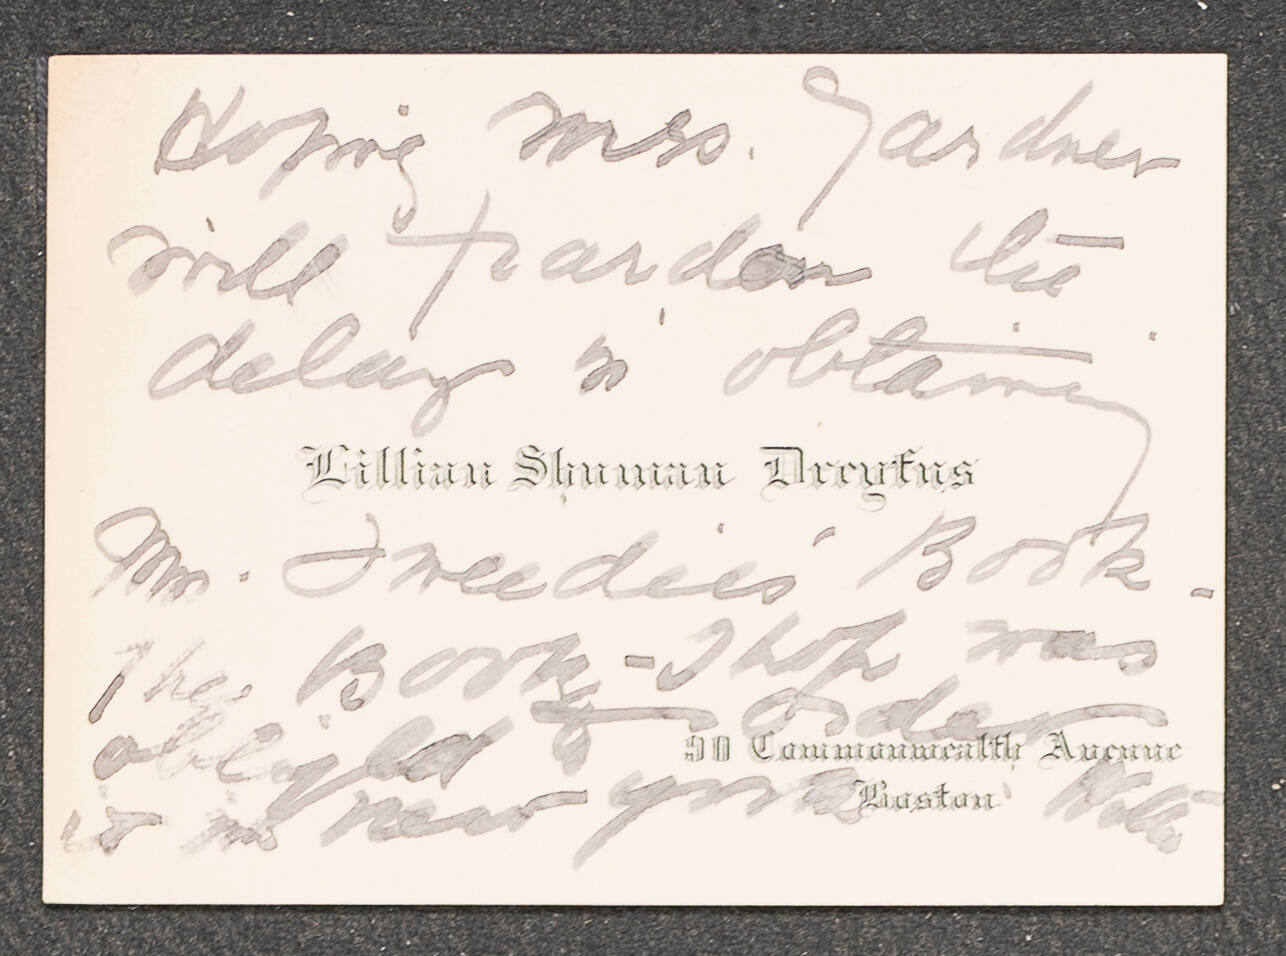 Hoping Mrs. Gardner
will pardon the
delay in obtaining
Lillian Shuman Dreyfus
Mr. Tweedie's Book -
The Book-Shop was
obliged to order
90 Commonwealth Avenue
it in New York
Boston